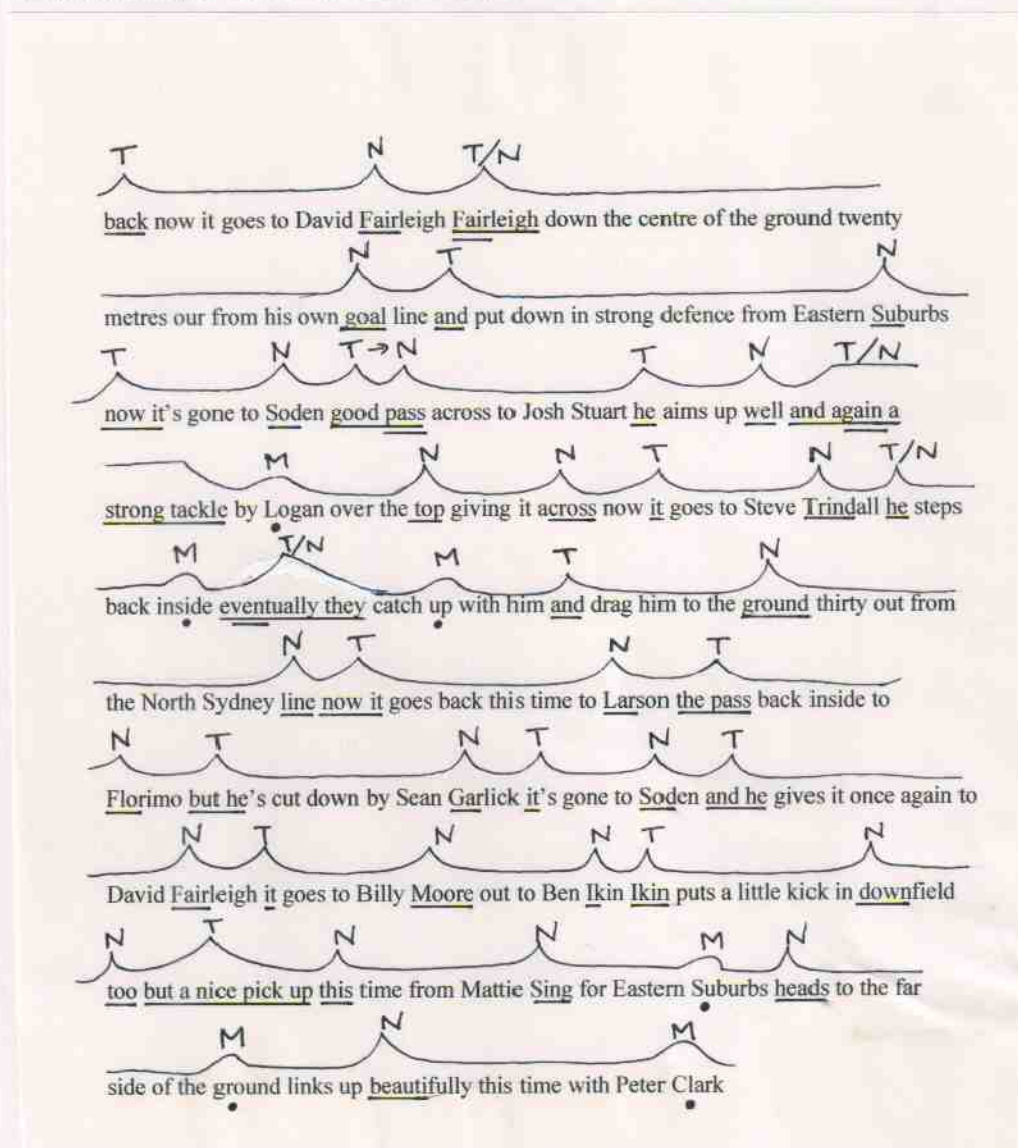 T N T/N
back now it goes to David Fairleigh Fairleigh down the centre of the ground twenty
N T N
metres our from his own goal line and put down in strong defence from Eastern Suburbs
T N T → N T N T/N
now it's gone to Soden good pass across to Josh Stuart he aims up well and again a
M N N T N T/N
strong tackle by Logan over the top giving it across now it goes to Steve Trindall he steps
M T/N M T N
back inside eventually they catch up with him and drag him to the ground thirty out from
N T N T
the North Sydney line now it goes back this time to Larson the pass back inside to
N T N T N T
Florimo but he's cut down by Sean Garlick it's gone to Soden and he gives it once again to
N T N N T N
David Fairleigh it goes to Billy Moore out to Ben Ikin Ikin puts a little kick in downfield
N T N N M N
too but a nice pick up this time from Mattie Sing for Eastern Suburbs heads to the far
M N M
side of the ground links up beautifully this time with Peter Clark